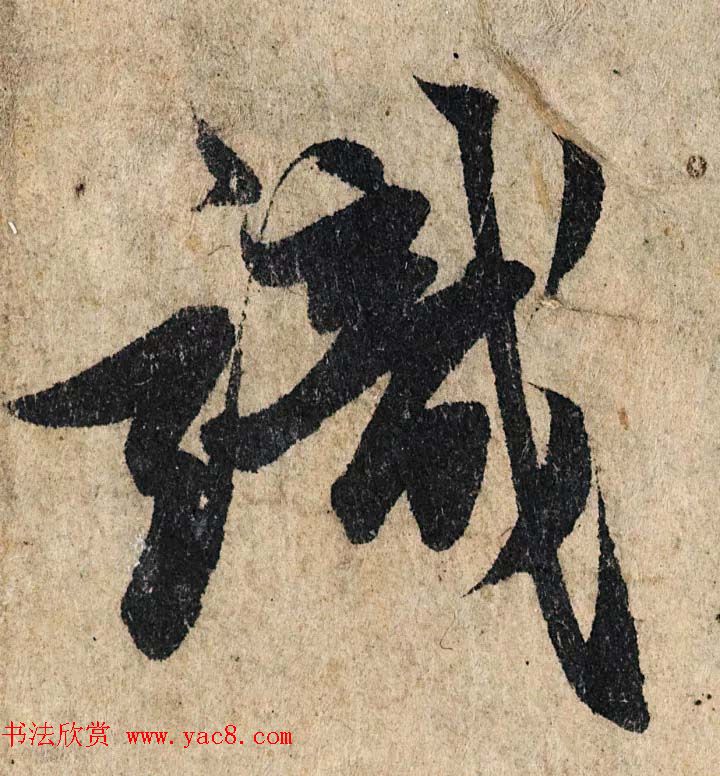 識
书法欣赏 www.yac8.com